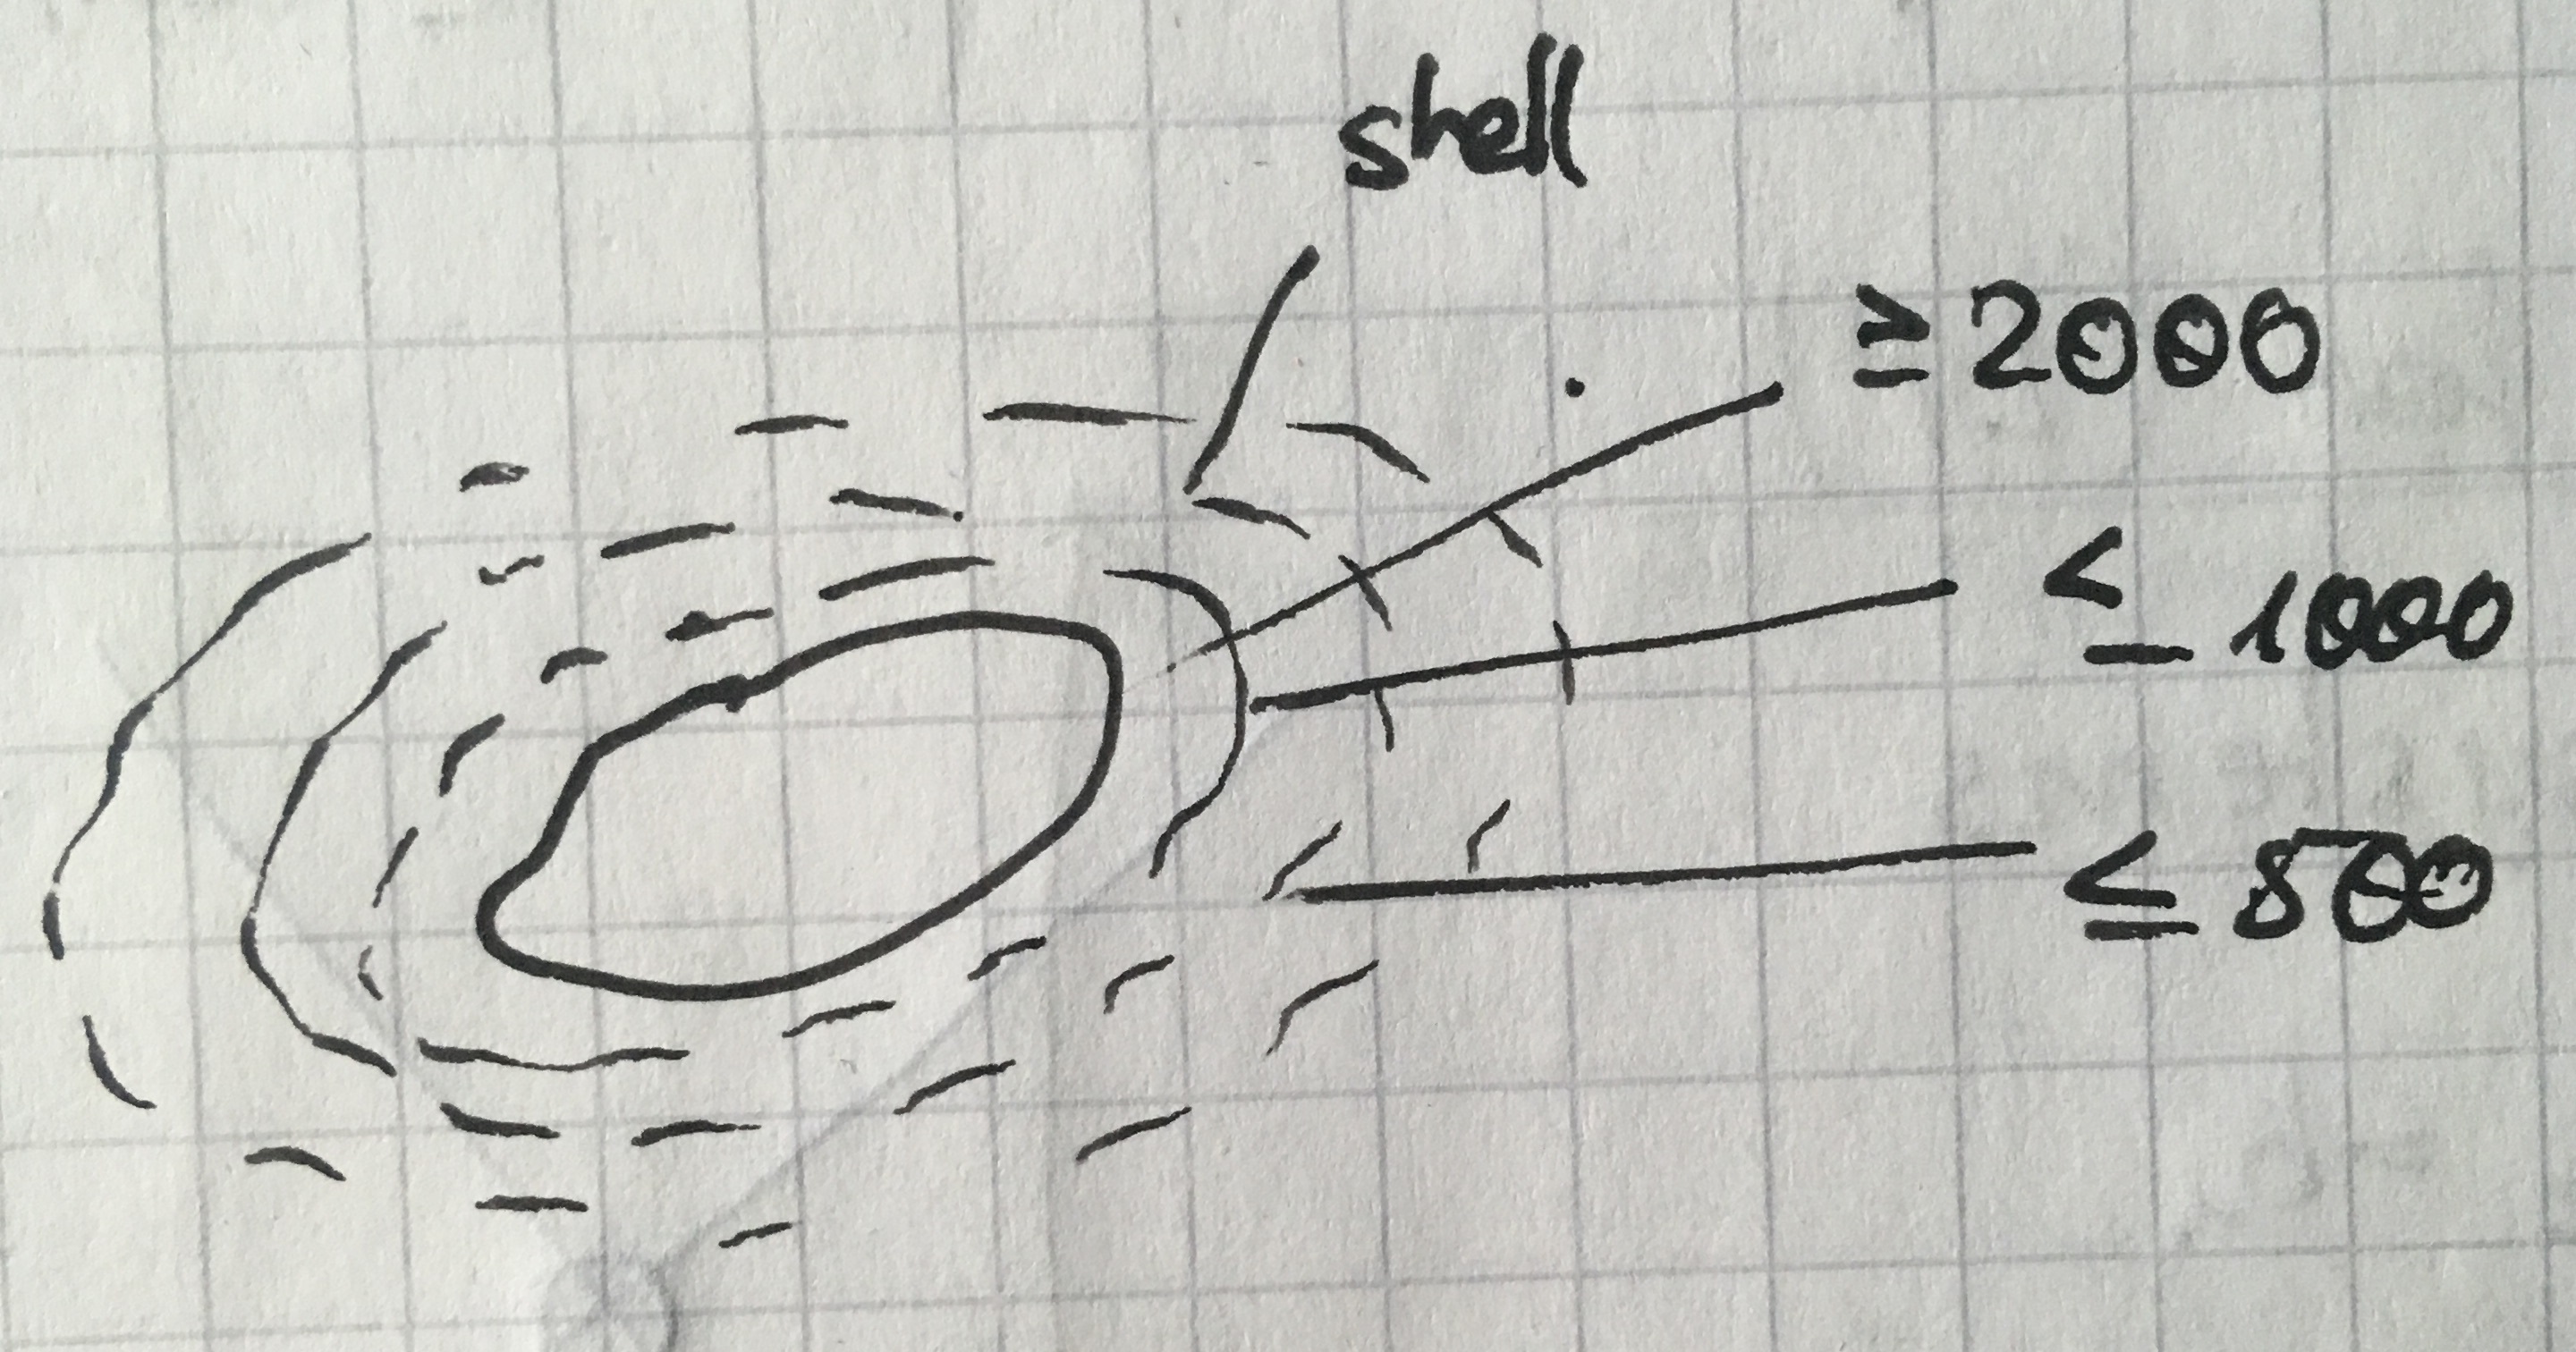 shell
≥ 2000
≤ 1000
≤ 500